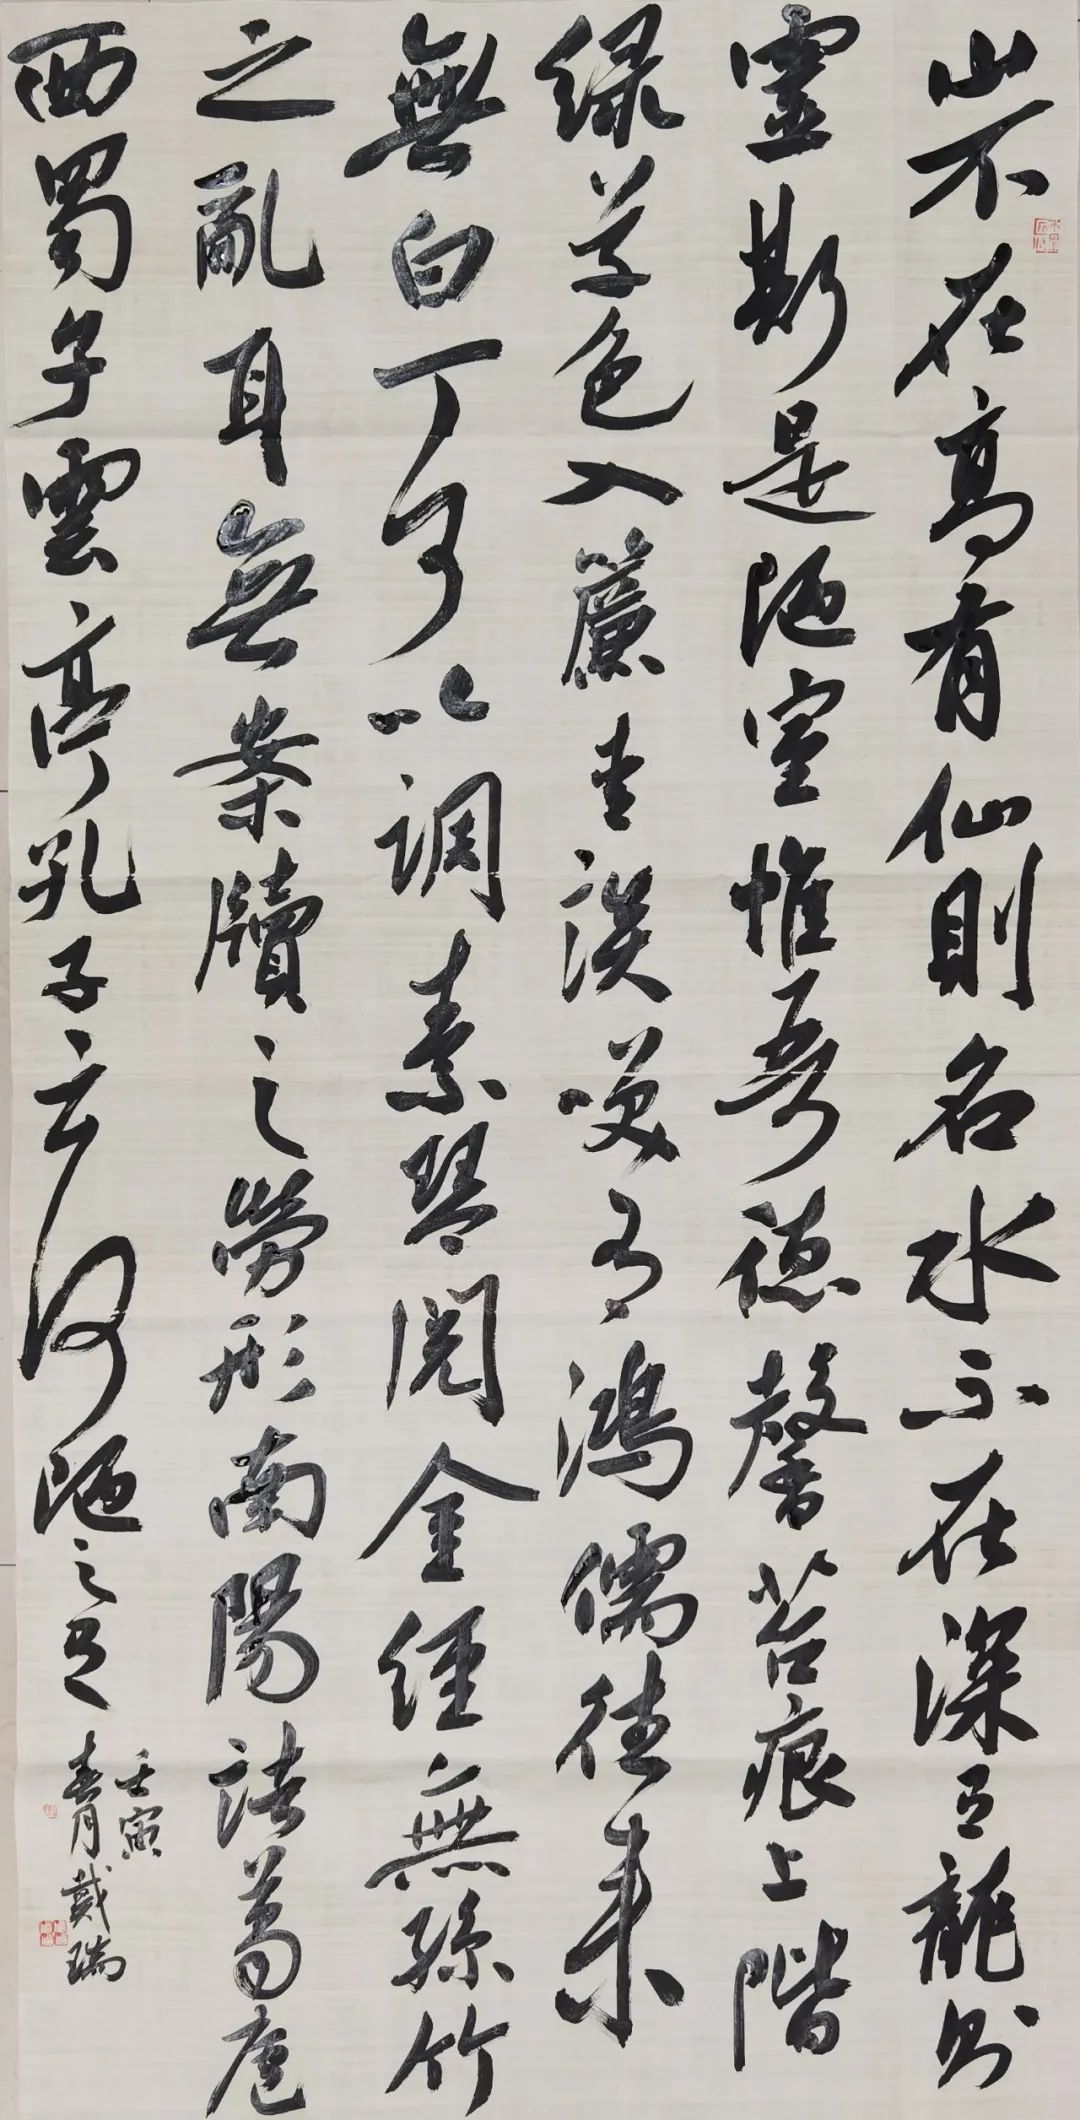 山不在高有仙則名水不在深有龍則
靈斯是陋室惟吾德馨苔痕上階
緑草色入簾青談咲有鴻儒往來
無白丁可以調素琴閱金經無絲竹
之亂耳無案牘之勞形南陽諸葛廬
西蜀子雲亭孔子云何陋之有
壬寅
春月戴瑞